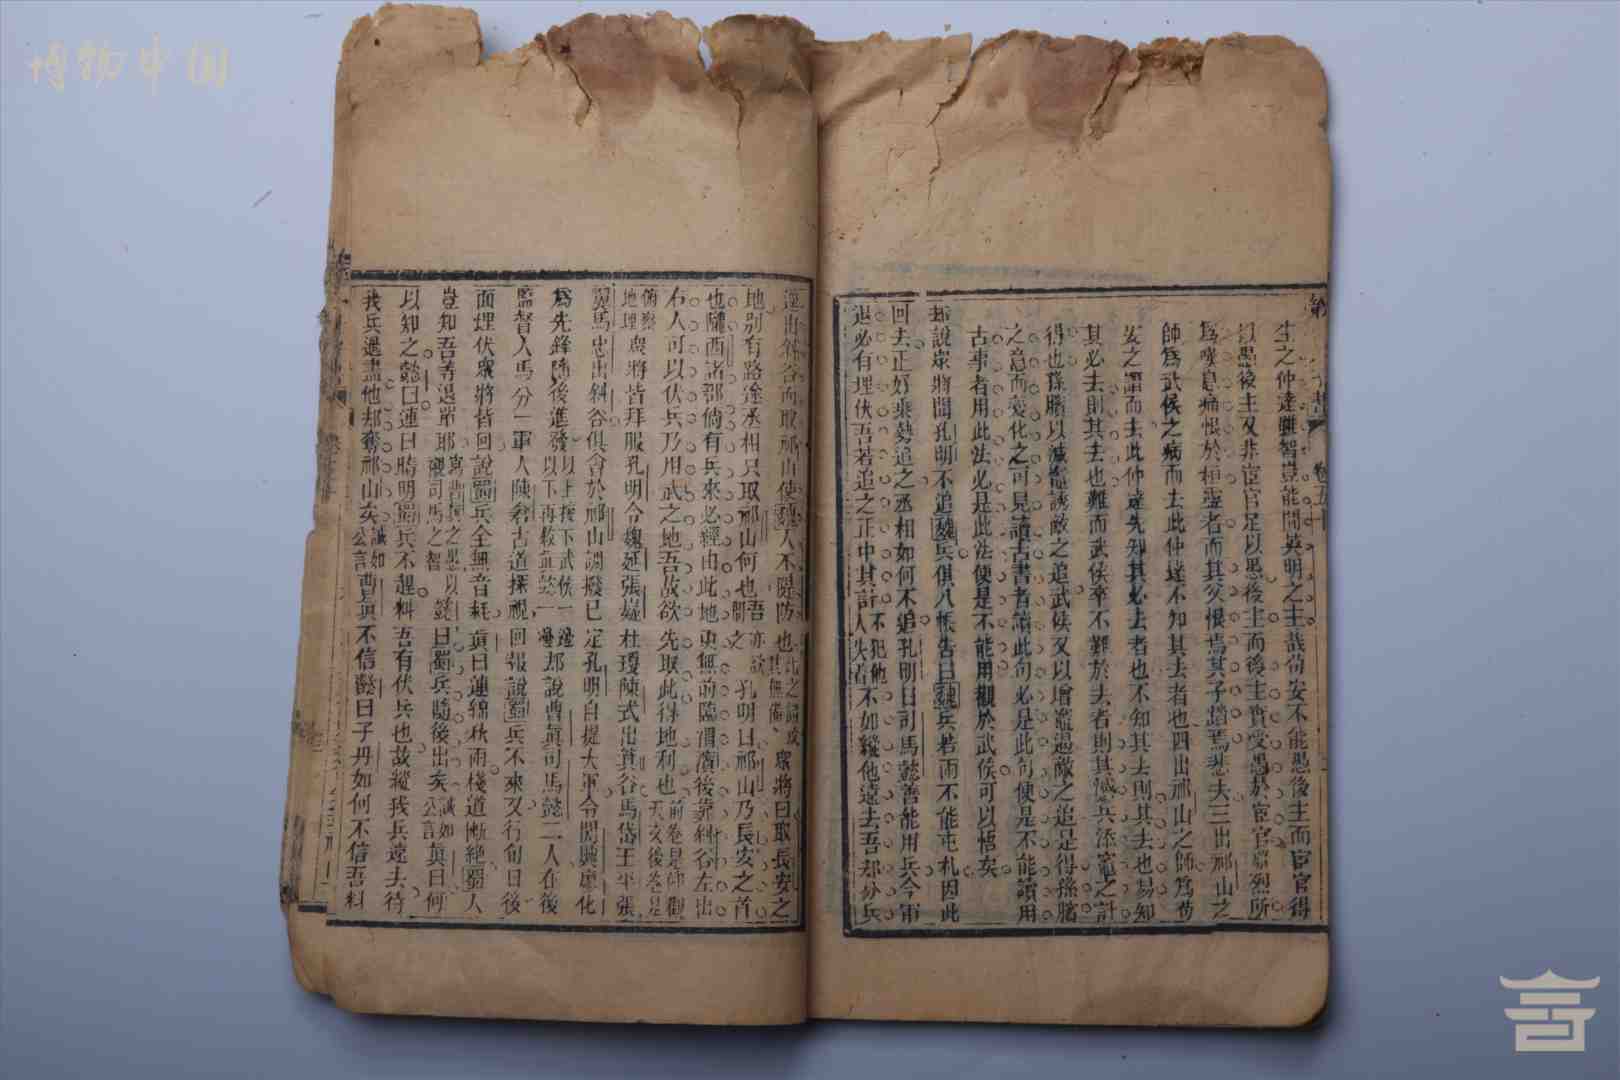 卷五十
生之仲達雖智豈能間英明之主哉苟安不能愚後主而宦官得
以愚後主又非宦官足以愚後主而後主實受愚於宦官烈所
爲嘆息痛恨於桓靈者而其父恨焉其子蹈焉悲夫三出祁山之
師爲武侯之病而去此仲達不知其去者也四出祁山之師爲苟
安之譖而去此仲達先知其必去者也不知其去則其去也易知
其必去則其去也難而武侯卒不難於去者則其減兵添竈之計
得也孫臏以減竈誘敵之追武侯又以增竈遏敵之追是得孫臏
之意而變化之可見讀古書者讀此句必是此句便是不能讀用
古事者用此法必是此法便是不能用觀於武侯可以悟矣
却說眾將聞孔明不追魏兵俱入帳告曰魏兵苦雨不能屯札因此
回去正好乘勢追之丞相如何不追孔明曰司馬懿善能用兵今軍
退必有埋伏吾若追之正中其計不犯他人失着不如縱他遠去吾却分兵
逕出斜谷而取祁山使魏人不隄防也此之謂攻其無備眾將曰取長安之
地別有路途丞相只取祁山何也吾亦欲問之孔明曰祁山乃長安之首
也隴西諸郡倘有兵來必經由此地更無前臨渭濱後靠斜谷左出
右入可以伏兵乃用武之地吾故欲先取此得地利也前卷是仰觀天文後卷是
俯察地理眾將皆拜服孔明令魏延張嶷杜瓊陳式出箕谷馬岱王平張
翼馬忠出斜谷俱會於祁山調撥已定孔明自提大軍令關興廖化
爲先鋒隨後進發以上按下武侯一邊以下再敘一邊却說曹眞司馬懿二人在後
監督人馬分一軍入陳倉古道探視回報說蜀兵不來又行旬日後
面埋伏眾將皆回說蜀兵全無音耗眞曰連綿秋雨棧道斷絕蜀人
豈知吾等退軍耶寫曹眞之愚以襯司馬之智懿曰蜀兵隨後出矣誠如公言眞曰何
以知之懿曰連日晴明蜀兵不趕料吾有伏兵也故縱我兵遠去待
我兵過盡他却奪祁山矣誠如公言曹眞不信懿曰子丹如何不信吾料
博物中国